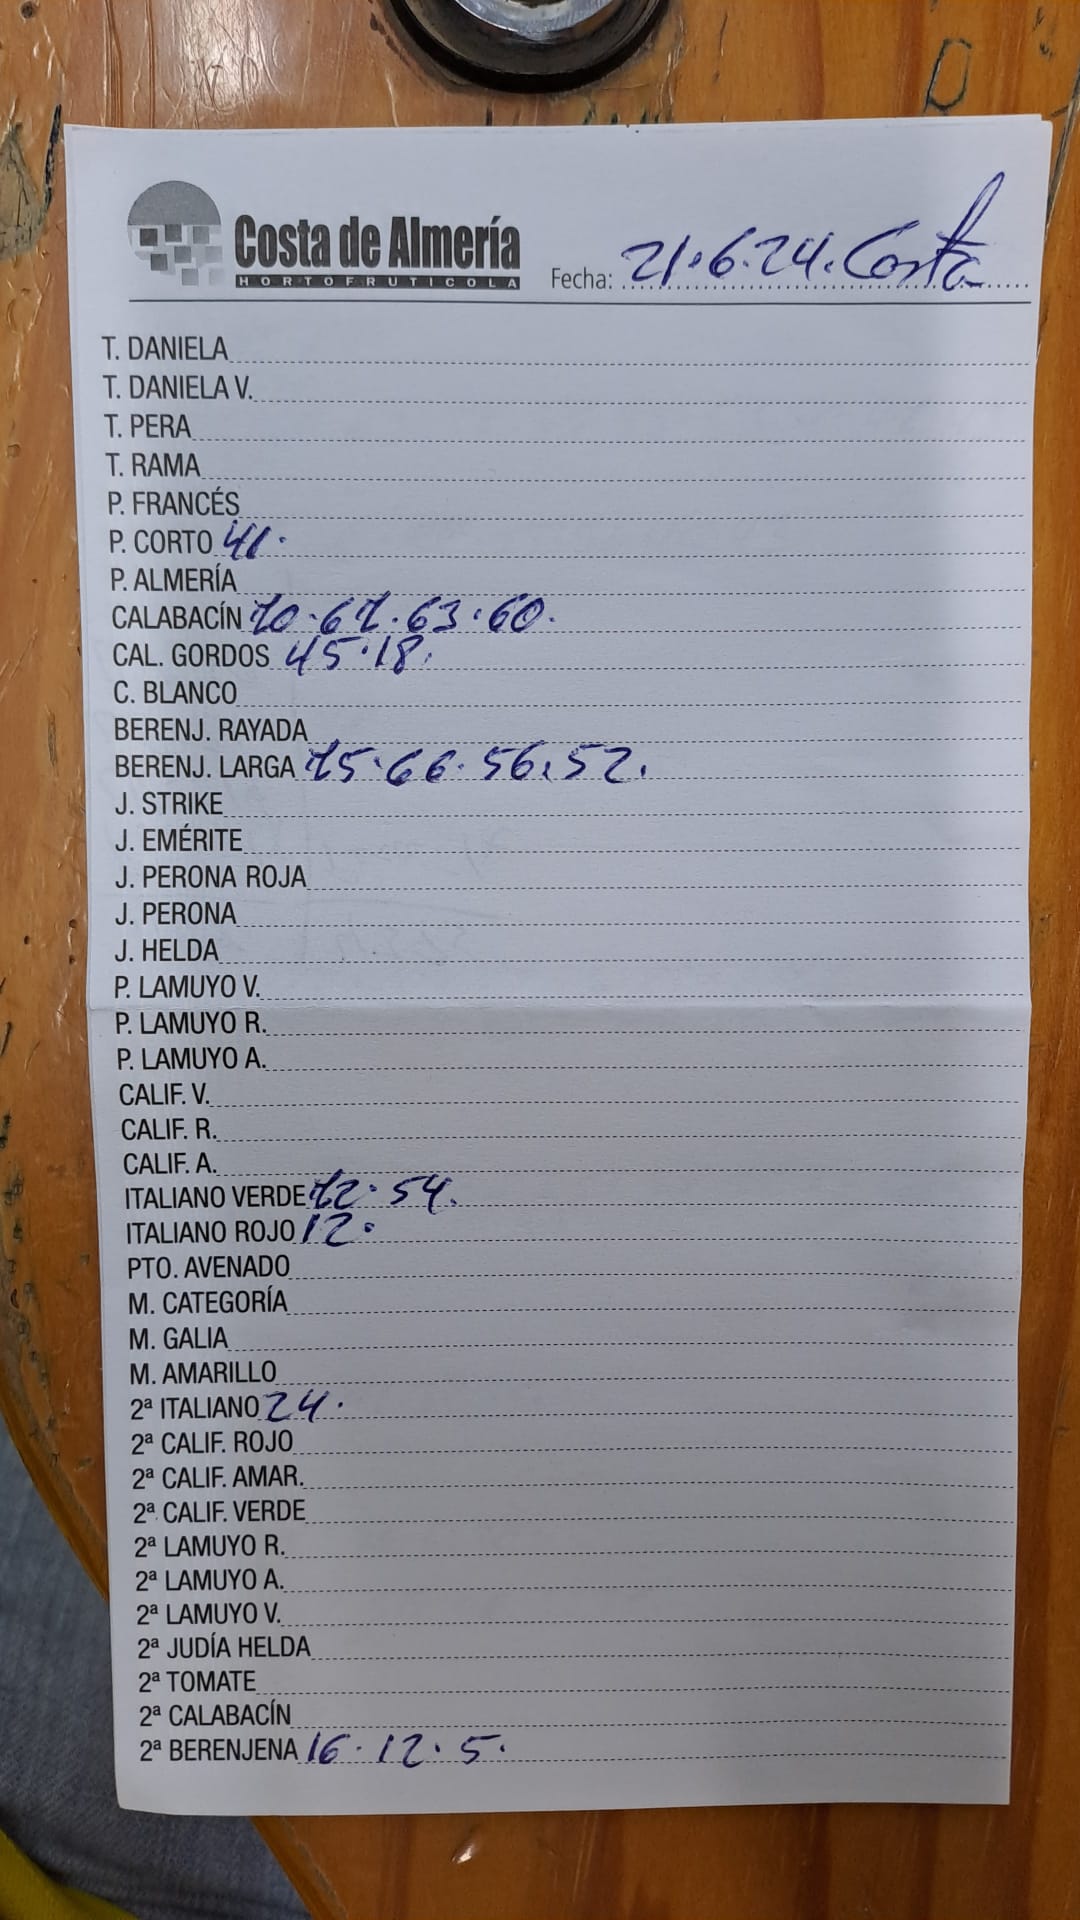 Costa de Almería
HORTOFRUTICOLA
Fecha: 21.6.24. Costa
T. DANIELA
T. DANIELA V.
T. PERA
T. RAMA
P. FRANCÉS
P. CORTO 41.
P. ALMERÍA
CALABACÍN 70.67.63.60.
CAL. GORDOS 45.18.
C. BLANCO
BERENJ. RAYADA
BERENJ. LARGA 75.66.56.52.
J. STRIKE
J. EMÉRITE
J. PERONA ROJA
J. PERONA
J. HELDA
P. LAMUYO V.
P. LAMUYO R.
P. LAMUYO A.
CALIF. V.
CALIF. R.
CALIF. A.
ITALIANO VERDE 72.54.
ITALIANO ROJO 12.
PTO. AVENADO
M. CATEGORÍA
M. GALIA
M. AMARILLO
2ª ITALIANO 24.
2ª CALIF. ROJO
2ª CALIF. AMAR.
2ª CALIF. VERDE
2ª LAMUYO R.
2ª LAMUYO A.
2ª LAMUYO V.
2ª JUDÍA HELDA
2ª TOMATE
2ª CALABACÍN
2ª BERENJENA 16.12.5.